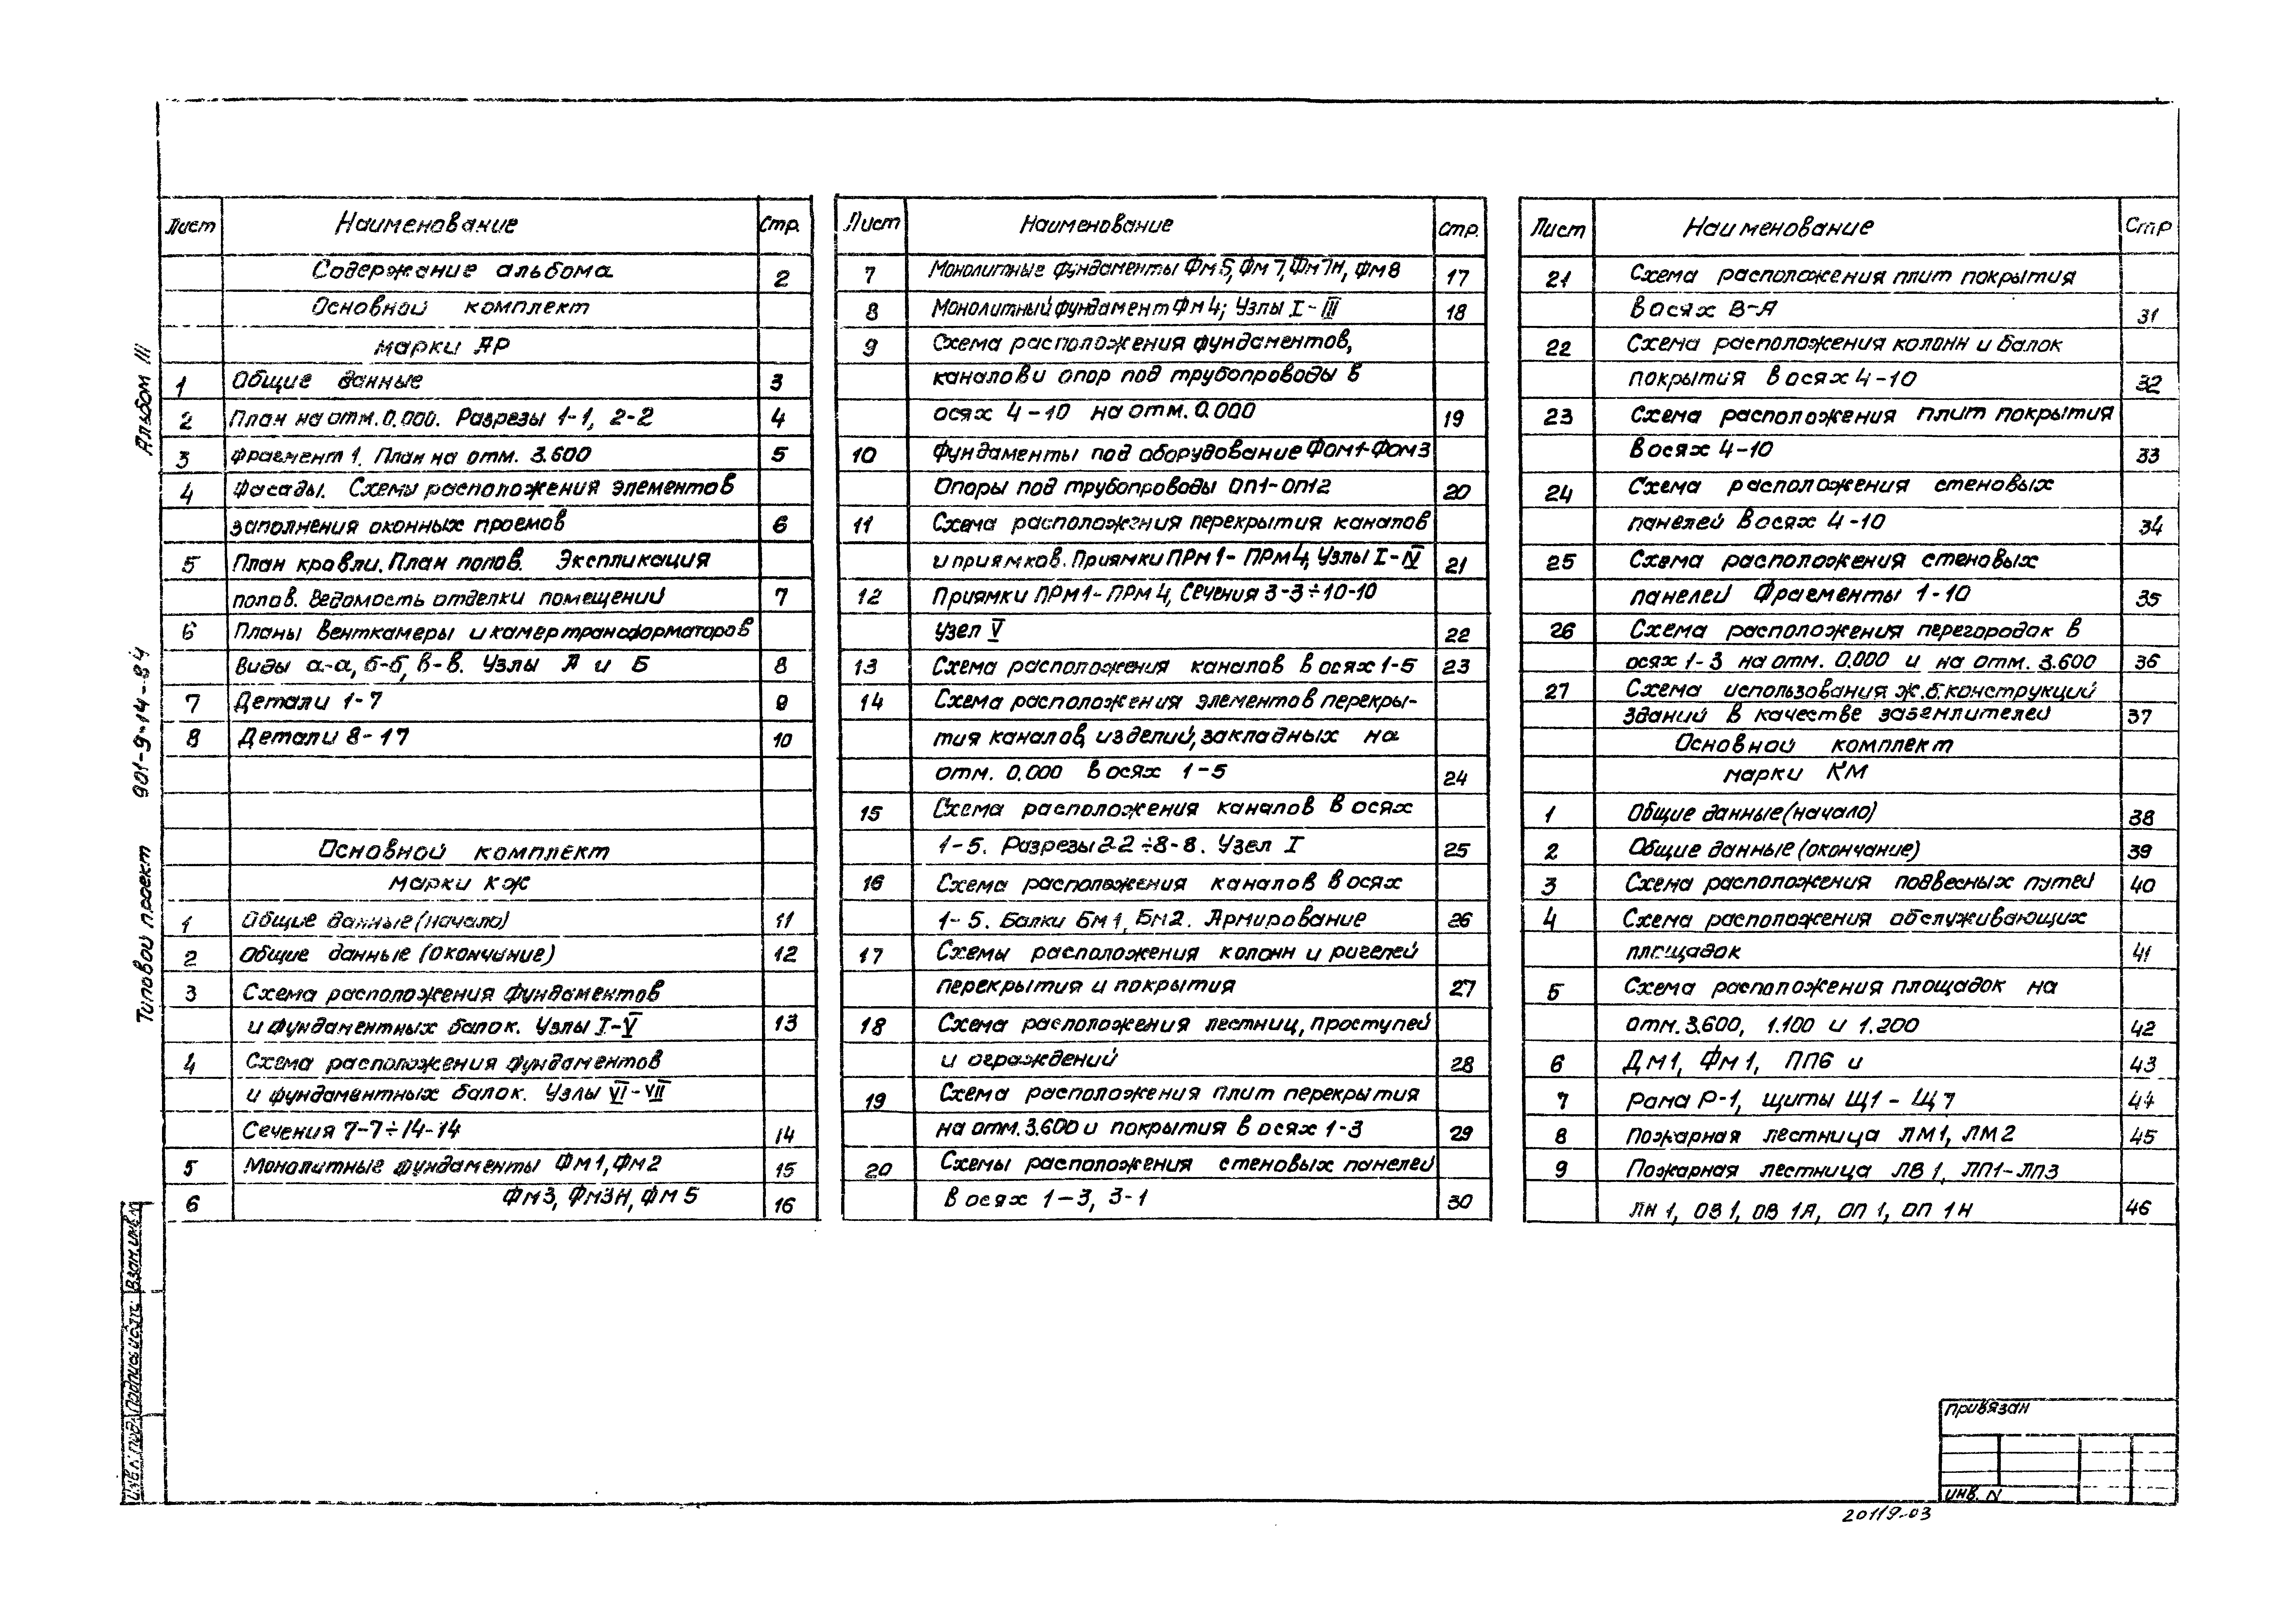 Альбом III
Типовой проект 901-9-14-84
Лист Наименование Стр.
Содержание альбома 2
Основной комплект
марки АР
1 Общие данные 3
2 План на отм. 0.000. Разрезы 1-1, 2-2 4
3 Фрагмент 1. План на отм. 3.600 5
4 Фасады. Схемы расположения элементов
заполнения оконных проемов 6
5 План кровли. План полов. Экспликация
полов. Ведомость отделки помещений 7
6 Планы венткамеры и камер трансформаторов
Виды а-а, б-б, в-в. Узлы А и Б 8
7 Детали 1-7 9
8 Детали 8-17 10
Основной комплект
марки КЖ
1 Общие данные (начало) 11
2 Общие данные (окончание) 12
3 Схема расположения фундаментов
и фундаментных балок. Узлы I-V 13
4 Схема расположения фундаментов
и фундаментных балок. Узлы VI-VII
Сечения 7-7÷14-14 14
5 Монолитные фундаменты Фм1, Фм2 15
6 Фм3, Фм3Н, Фм5 16
Лист Наименование Стр.
7 Монолитные фундаменты Фм5, Фм7, Фм7Н, Фм8 17
8 Монолитный фундамент Фм4; Узлы I-III 18
9 Схема расположения фундаментов,
каналов и опор под трубопроводы в
осях 4-10 на отм. 0.000 19
10 Фундаменты под оборудование Фом1-Фом3
Опоры под трубопроводы ОП1-ОП12 20
11 Схема расположения перекрытия каналов
и приямков. Приямки ПРм1-ПРм4, Узлы I-IV 21
12 Приямки ПРм1-ПРм4, Сечения 3-3÷10-10
Узел V 22
13 Схема расположения каналов в осях 1-5 23
14 Схема расположения элементов перекры-
тия каналов, изделий, закладных на
отм. 0.000 в осях 1-5 24
15 Схема расположения каналов в осях
1-5. Разрезы 2-2÷8-8. Узел I 25
16 Схема расположения каналов в осях
1-5. Балки Бм1, Бм2. Армирование 26
17 Схемы расположения колонн и ригелей
перекрытия и покрытия 27
18 Схема расположения лестниц, проступей
и ограждений 28
19 Схема расположения плит перекрытия
на отм. 3.600 и покрытия в осях 1-3 29
20 Схемы расположения стеновых панелей
в осях 1-3, 3-1 30
Лист Наименование Стр
21 Схема расположения плит покрытия
в осях В-А 31
22 Схема расположения колонн и балок
покрытия в осях 4-10 32
23 Схема расположения плит покрытия
в осях 4-10 33
24 Схема расположения стеновых
панелей в осях 4-10 34
25 Схема расположения стеновых
панелей Фрагменты 1-10 35
26 Схема расположения перегородок в
осях 1-3 на отм. 0.000 и на отм. 3.600 36
27 Схема использования ж.б. конструкций
зданий в качестве заземлителей 37
Основной комплект
марки КМ
1 Общие данные (начало) 38
2 Общие данные (окончание) 39
3 Схема расположения подвесных путей 40
4 Схема расположения обслуживающих
площадок 41
5 Схема расположения площадок на
отм. 3.600, 1.100 и 1.200 42
6 ДМ1, ФМ1, ПП6 и 43
7 Рама Р-1, щиты Щ1-Щ7 44
8 Пожарная лестница ЛМ1, ЛМ2 45
9 Пожарная лестница ЛВ1, ЛП1-ЛП3
ЛН1, ОВ1, ОВ1А, ОП1, ОП1Н 46
Взам. инв. N
Подпись и дата
Инв. N под.
Привязан
инв. N
20119-03